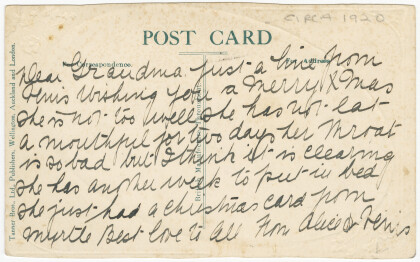 CIRCA 1920
POST CARD
Correspondence.
For Address
Dear Grandma just a line from
Venis wishing you a merry X mas
she is not too well she has not eat
a mouthful for two days her throat
is so bad but I think it is clearing
she has another week to put in bed
she just had a christmas card from
myrtle Best love to all from Alice & Venis
Tanner Bros. Ltd., Publishers, Wellington, Auckland and London.